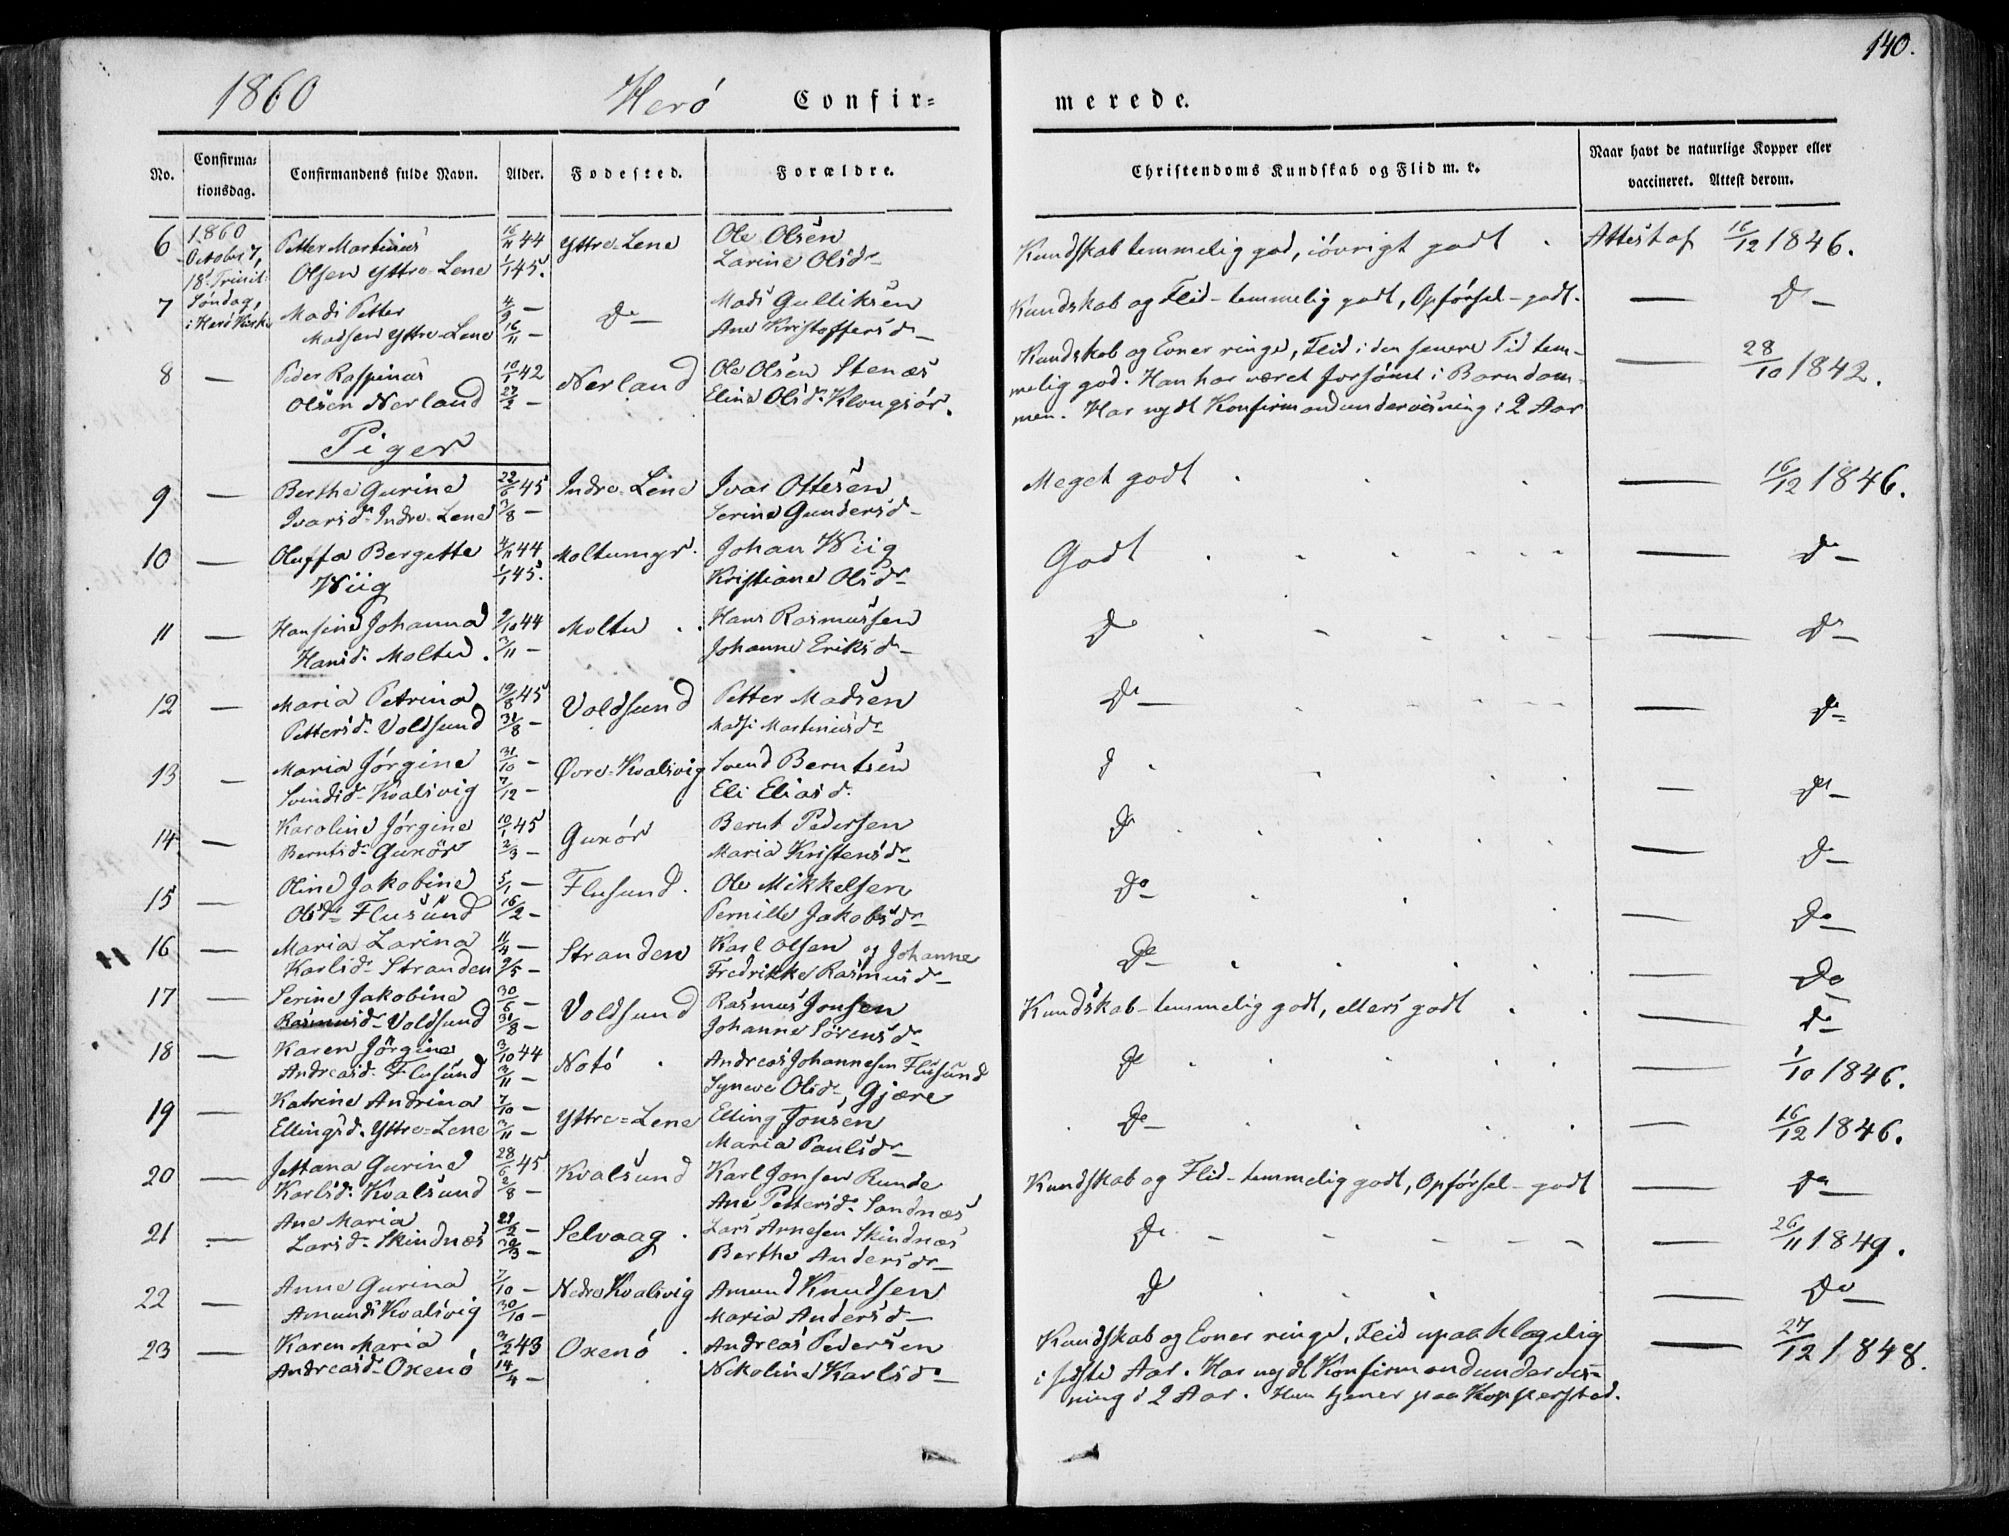 140.
1860 Herö Confir=
merede.
No. Confirma=tionsdag. Confirmandens fulde Navn. Alder. Fødested. Forældre. Christendoms Kundskab og Flid m. v. Naar havt de naturlige Kopper eller vaccineret. Attest derom.
6 1860 Petter Martinus 16/11 44 Yttre-Lene Ole Olsen Kundskab temmelig god, iövrigt godt Attest af 16/12 1846.
October 7, Olsen Yttre-Lene 1/1 45. Larine Olsdr
18d Trinit:
7 Söndag, Mads Petter 4/9 — Do Mads Gulliksen Kundskab og Flid - temmelig godt, Opförsel - godt. — Do
i Herö Kirke Madsen Yttre-Lene 16/11 — Ane Kristoffersdr
8 — Peder Raspinus 10/1 42 Nerland Ole Olsen Stenæs Kundskab og Evner ringe, Flid i den senere Tid tem- — 28/10 1842.
Olsen Nerland 27/2 — Eline Olsdr Klongsör. melig god. Han har været forsömt i Barndom-
men. Har nydt Konfirmandundervisning i 2 Aar
Piger
9 — Berthe Gurine 22/6 45 Indre-Lene Ivar Ottesen Meget godt — 16/12 1846.
Ivarsdr Indre-Lene 3/8 — Serine Gundersdr
10 — Oluffa Bergette 4/11 44 Moltumyr. Johan Wiig Godt — Do
Wiig 1/1 45. Kristiane Olsdr
11 — Hansine Johanna 9/10 44 Moltu Hans Rasmussen Do — Do
Hansd. Moltu. 3/11 — Johanne Eriksdr
12 — Maria Petrina 19/8 45 Voldsund Petter Madsen Do — Do
Pettersdr Voldsund 31/8 — Madsi Martinusdr
13 — Maria Jörgine 31/10 — Övre-Kvalsvig Svend Berntsen Do — Do
Svendsdr Kvalsvig 7/12 — Eli Eliasd.
14 — Karoline Jörgine 10/1 45 Guxör Bernt Pedersen Do — Do
Berntsdr Guxör 2/3 — Maria Kristensdr
15 — Oline Jakobine 5/1 — Flusund. Ole Mikkelsen Do — Do
Olsdr Flusund 16/2 — Pernille Jakobsdr
16 — Maria Larina 11/4 — Stranden Karl Olsen og Johanne Do — Do
Karlsdr Stranden 9/5 — Fredrikke Rasmusdr
17 — Serine Jakobine 30/6 — Voldsund Rasmus Jonsen Kundskab - temmelig godt, ellers godt — Do
Rasmusdr Voldsund 31/8 — Johanne Sörensdr
18 — Karen Jörgine 3/10 44 Notö Andreas Johannesen Flusund Do — 1/10 1846.
Andreasdr Flusund 3/11 — Syneve Olsdr, Gjære
19 — Katrine Andrina 7/10 — Yttre-Lene Elling Jonsen Do — 16/12 1846.
Ellingsd. Yttre-Lene 3/11 — Maria Paulsdr
20 — Jettana Gurine 28/6 45 Kvalsund Karl Jonsen Runde Kundskab og Flid - temmelig godt, Opförsel - godt — Do
Karlsd. Kvalsund 2/8 — Ane Pettersdr Sandnæs
21 — Ane Maria 22/2 — Selvaag Lars Arnesen Skindnæs Do — 26/11 1849.
Larsdr Skindnæs 30/3 — Berthe Andersdr
22 — Anne Gurina 7/10 — Nedre Kvalsvig Amund Knudsen Do — Do
Amunds Kvalsvig 30/10 — Maria Andersdr
23 — Karen Maria 3/2 43 Oxenö Andreas Pedersen Kundskab og Evner ringe, Flid upaaklagelig — 27/12 1848.
Andreasdr Oxenö 14/4 — Nikoline Karlsdr i sidste Aar. Har nydt Konfirmandundervis-
ning i 2 Aar. Hun tjener paa Kopperstad.